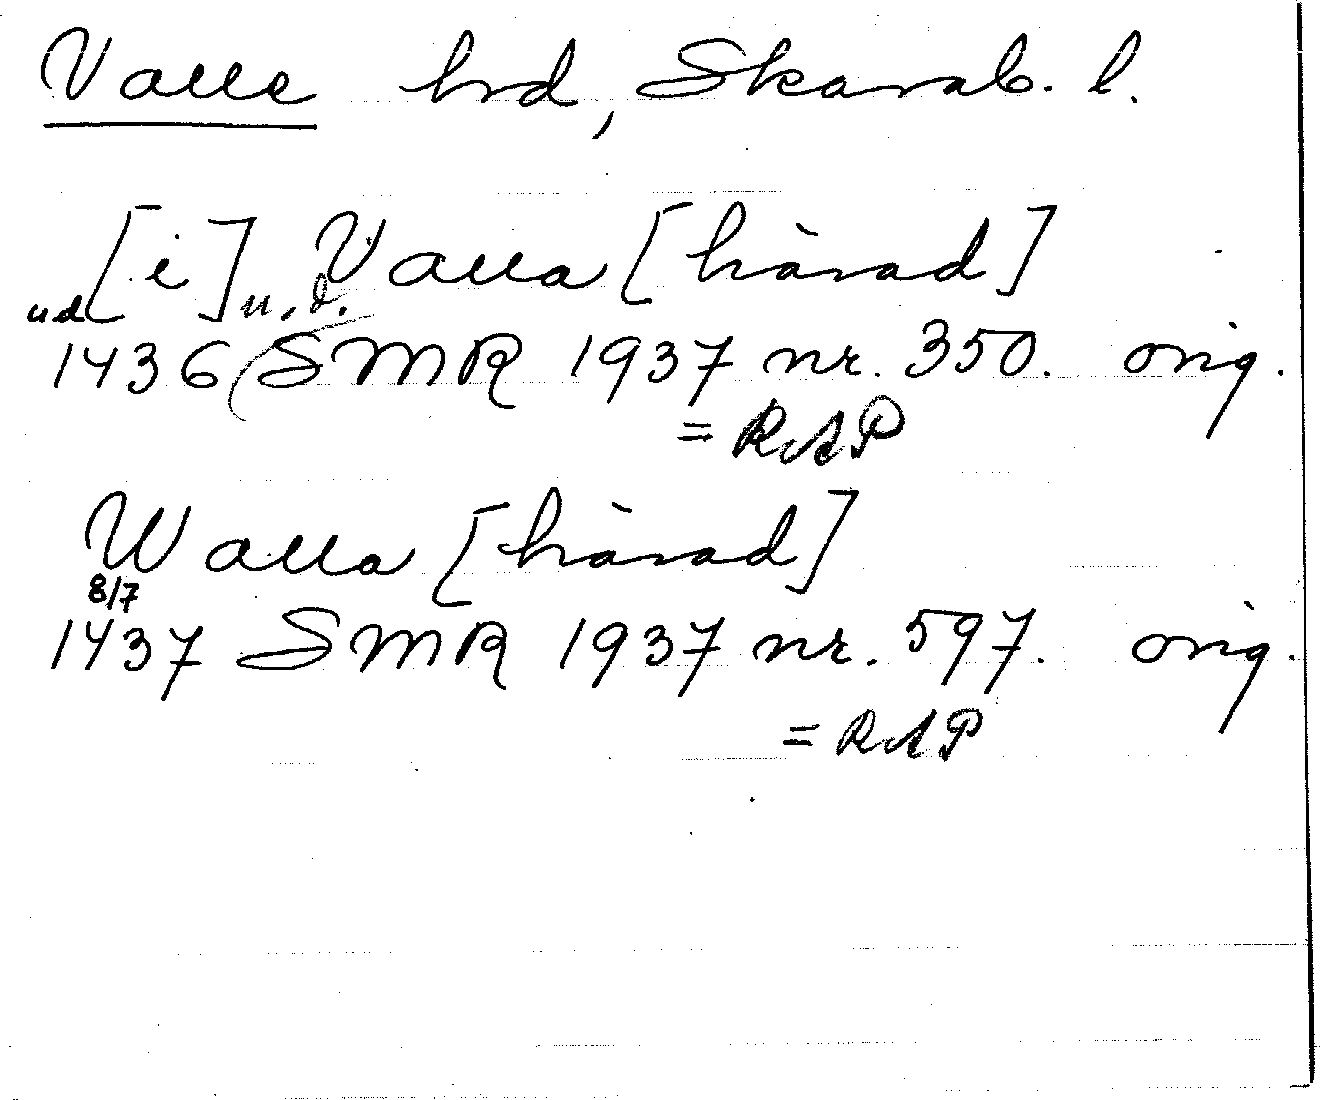 Valle hrd, Skarab. l.
[i] Valla [härad]
ud u.d.
1436 (SMR 1937 nr. 350. orig.
= RAP
Walla [härad]
8/7
1437 SMR 1937 nr. 597. orig.
= RAP